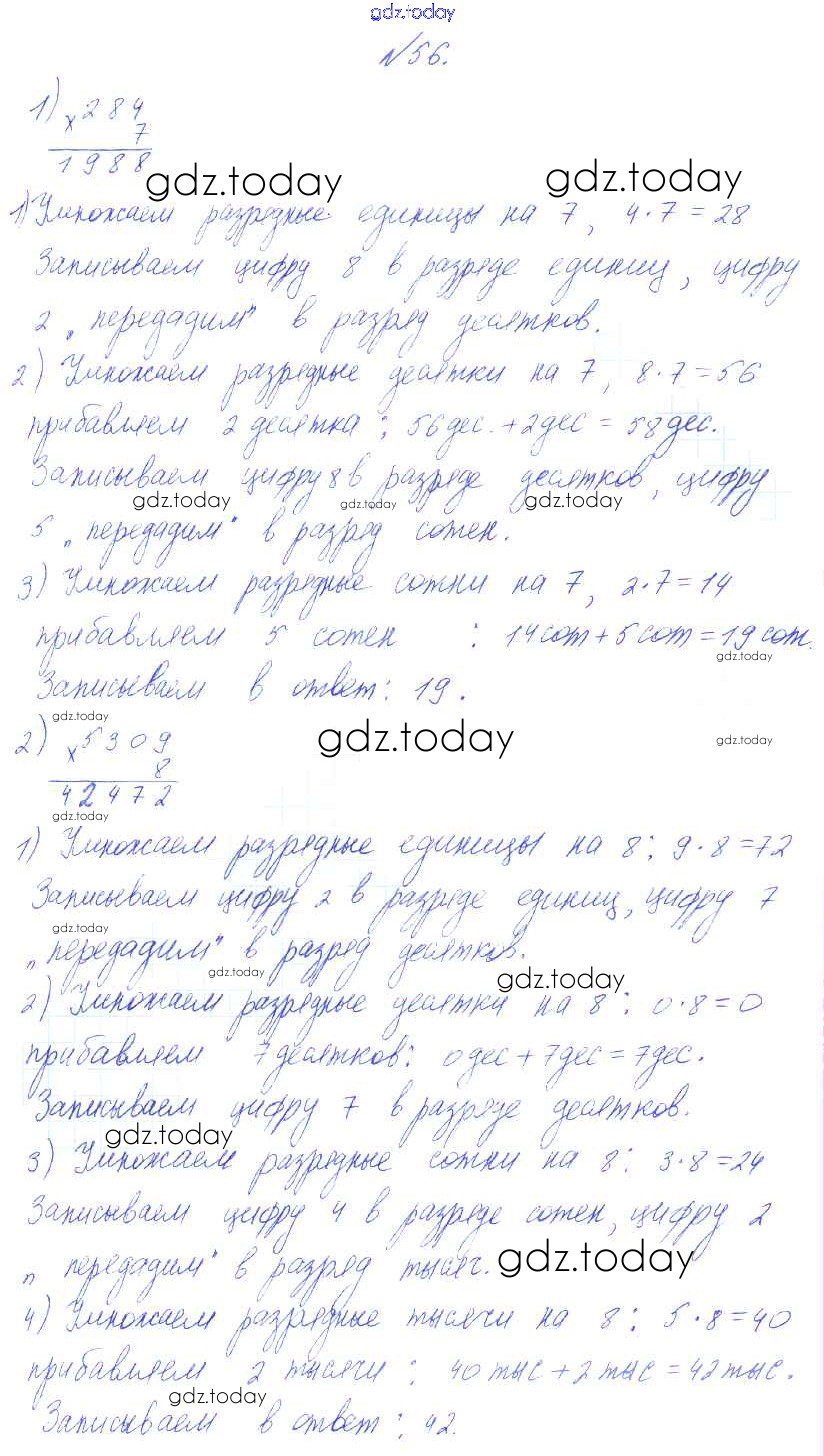 gdz.today
№56.
1) × 284
7
1988
gdz.today gdz.today
1) Умножаем разрядные единицы на 7, 4·7=28
Записываем цифру 8 в разряде единиц, цифру
2 „передадим" в разряд десятков.
2) Умножаем разрядные десятки на 7, 8·7=56
прибавляем 2 десятка: 56дес.+2дес=58дес.
Записываем цифру 8 в разряде десятков, цифру
gdz.today gdz.today gdz.today
5 „передадим" в разряд сотен.
3) Умножаем разрядные сотни на 7, 2·7=14
прибавляем 5 сотен : 14сот+5сот=19сот.
gdz.today
Записываем в ответ: 19.
gdz.today
2) × 5309
gdz.today gdz.today
8
42472
gdz.today
1) Умножаем разрядные единицы на 8: 9·8=72
Записываем цифру 2 в разряде единиц, цифру 7
gdz.today
„передадим" в разряд десятков.
gdz.today gdz.today
2) Умножаем разрядные десятки на 8: 0·8=0
прибавляем 7десятков: 0дес+7дес=7дес.
Записываем цифру 7 в разряде десятков.
gdz.today
3) Умножаем разрядные сотни на 8: 3·8=24
Записываем цифру 4 в разряде сотен, цифру 2
„ передадим" в разряд тысяч.
gdz.today
4) Умножаем разрядные тысячи на 8: 5·8=40
прибавляем 2 тысячи: 40тыс+2тыс=42тыс.
gdz.today
Записываем в ответ: 42.